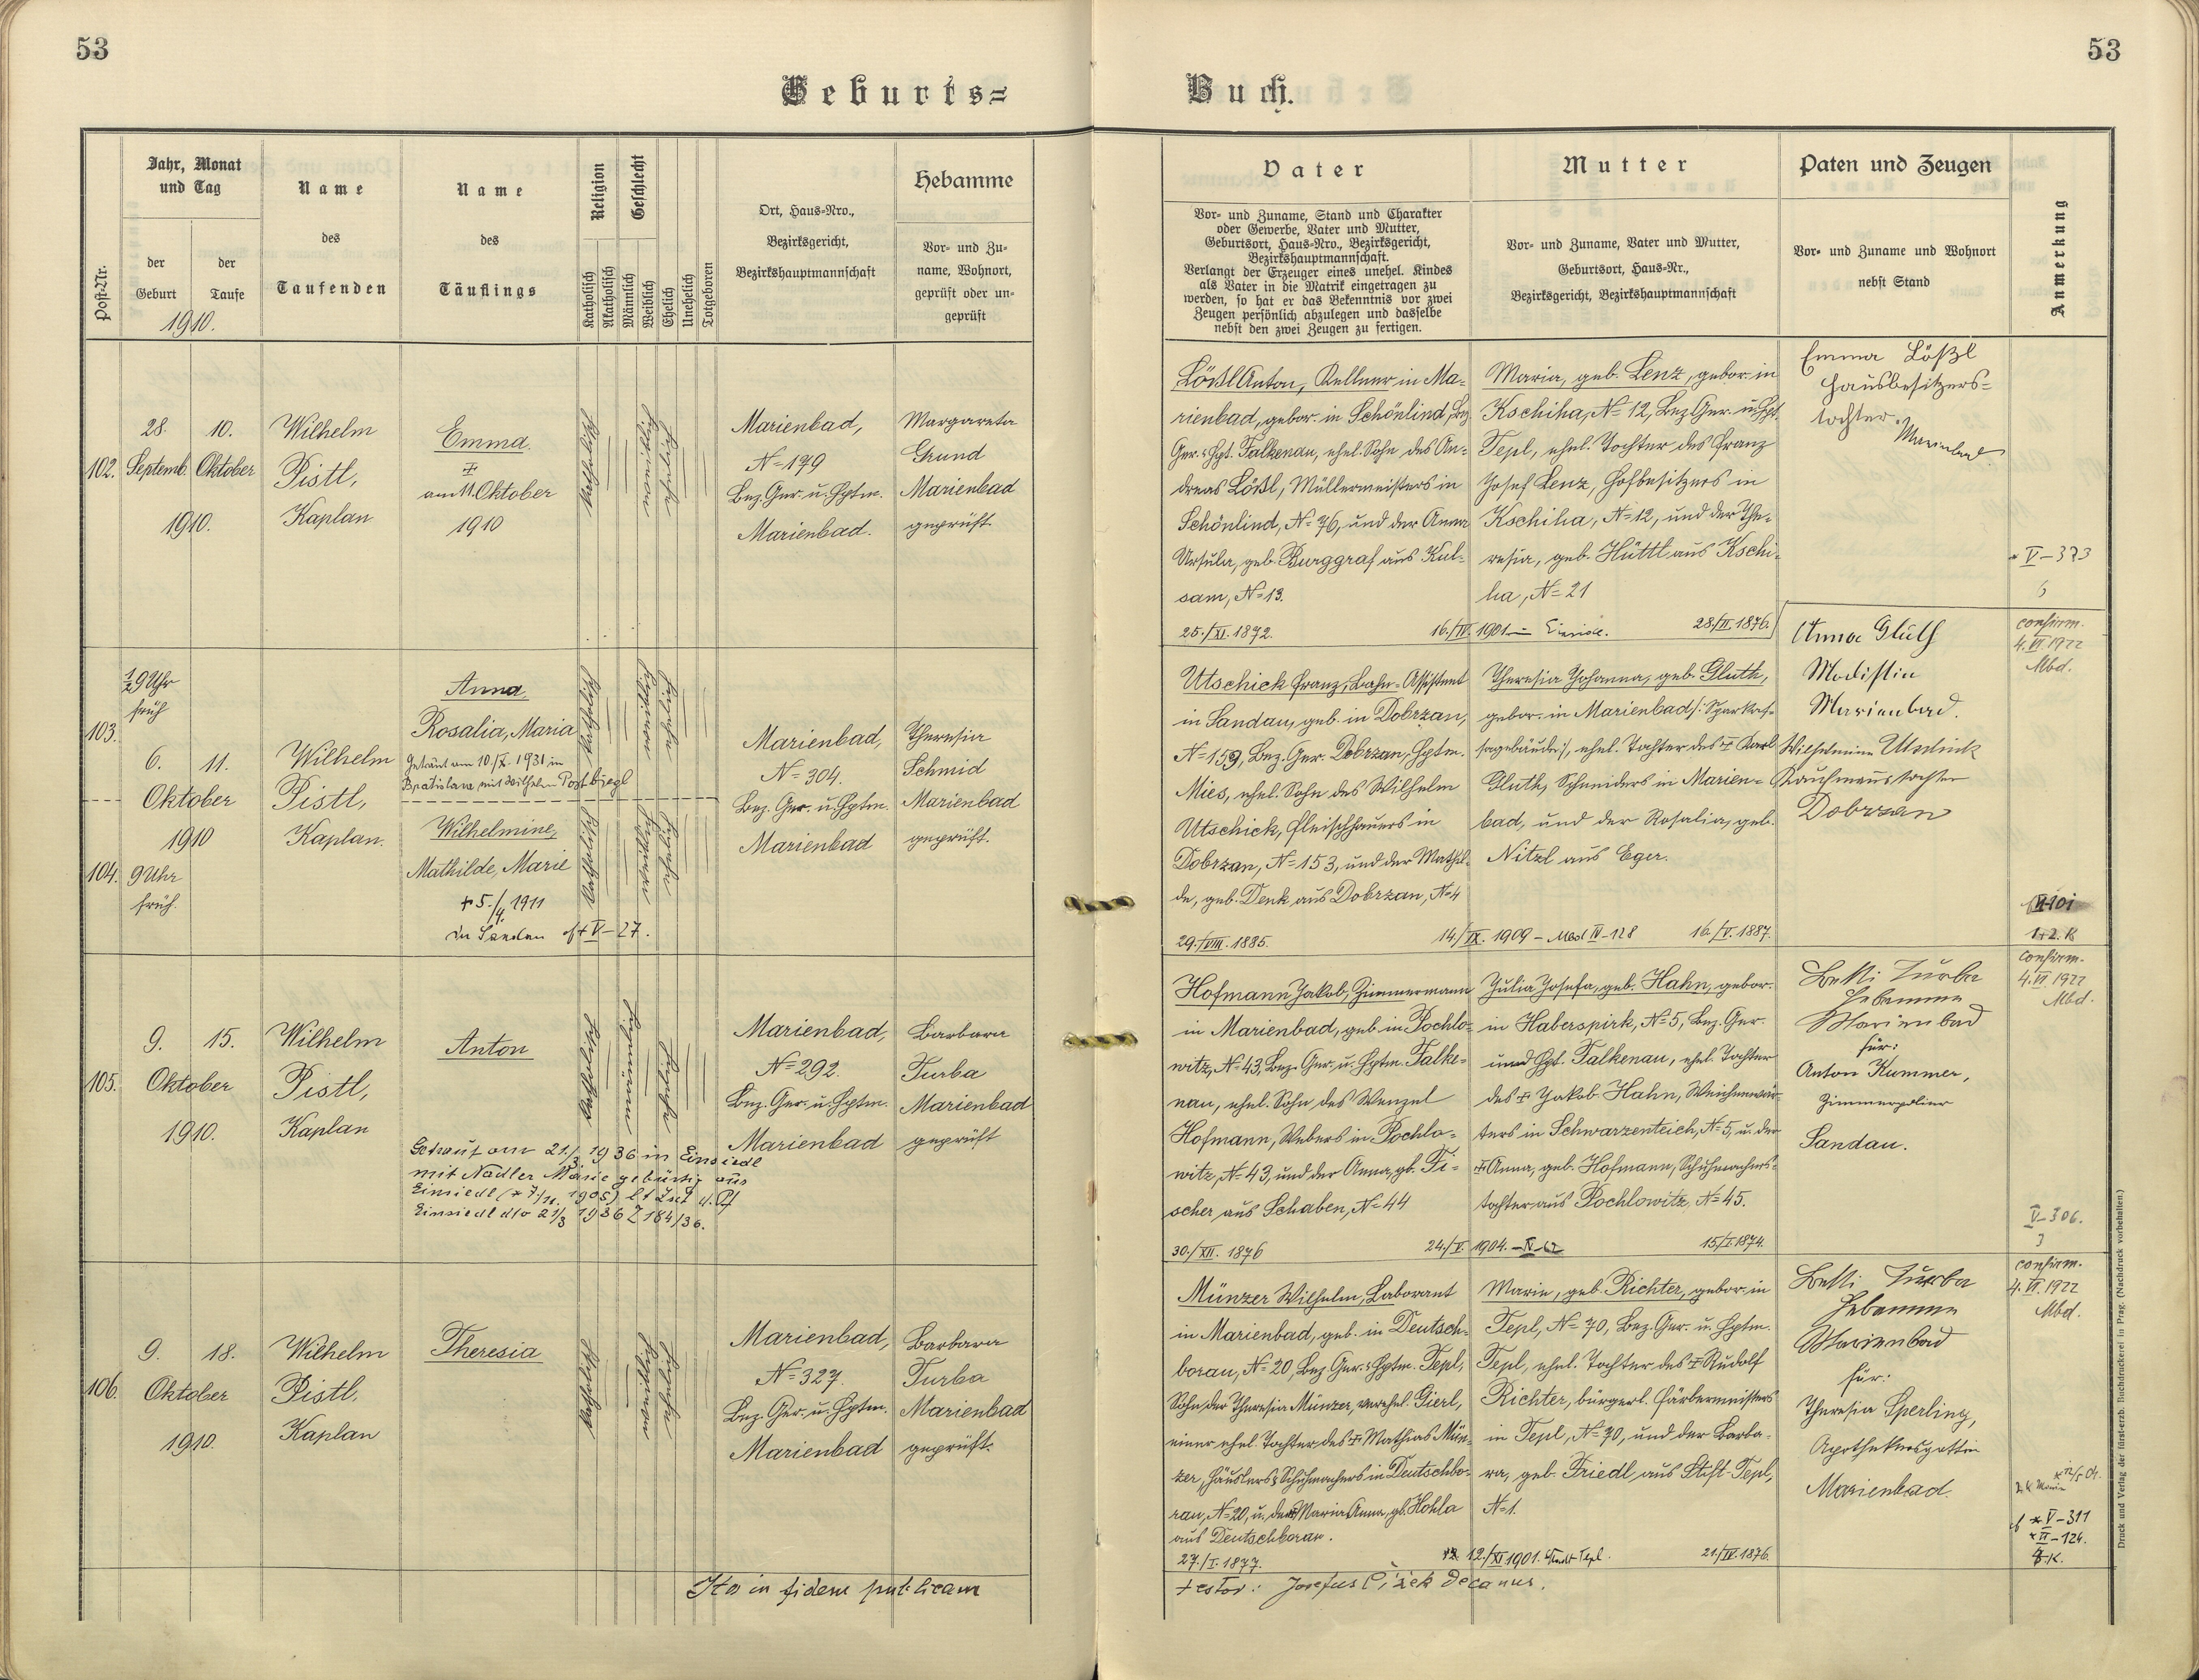 53
53
Geburts=
Buch.
Post-Nr.
Jahr, Monat
und Tag
der
Geburt
der
Taufe
1910.
Name
des
Taufenden
Name
des
Täuflings
Religion
Geschlecht
Katholisch
Akatholisch
Männlich
Weiblich
Ehelich
Unehelich
Totgeboren
Ort, Haus-Nro.,
Bezirksgericht,
Bezirkshauptmannschaft
Hebamme
Vor- und Zu-
name, Wohnort,
geprüft oder un-
geprüft
Vater
Vor- und Zuname, Stand und Charakter
oder Gewerbe, Vater und Mutter,
Geburtsort, Haus-Nro., Bezirksgericht,
Bezirkshauptmannschaft.
Verlangt der Erzeuger eines unehel. Kindes
als Vater in die Matrik eingetragen zu
werden, so hat er das Bekenntnis vor zwei
Zeugen persönlich abzulegen und dasselbe
nebst den zwei Zeugen zu fertigen.
Mutter
Vor- und Zuname, Vater und Mutter,
Geburtsort, Haus-Nr.,
Bezirksgericht, Bezirkshauptmannschaft
Paten und Zeugen
Vor- und Zuname und Wohnort
nebst Stand
Anmerkung
102.
28. 10.
Septemb. Oktober
1910.
Wilhelm
Pistl,
Kaplan
Emma
‡
am 11. Oktober
1910
Katholisch
Marienbad,
N=179
Bez. Ger. u. Hptm.
Marienbad.
Margareta
Grund
Marienbad
geprüft
Lößl Anton, Kellner in Ma=
rienbad, gebor. in Schönlind, Bez.
Ger. & Hpt. Falkenau, ehel. Sohn des An=
dreas Lößl, Müllermeisters in
Schönlind, N=76, und der Anna
Ursula, geb. Burggraf aus Kul=
sam, N=13.
25./XI. 1872.
16./IV. 1901
Maria, geb. Lenz, gebor. in
Kschiha, N=12, Bez. Ger. u. Hpt.
Tepl, ehel. Tochter des Franz
Josef Lenz, Hofbesitzers in
Kschiha, N=12, und der The=
resia, geb. Hüttl aus Kschi=
ha, N=21
28/II. 1876.
Emma Lößl
Hausbesitzers=
tochter.
Marienbad
V-373
6
103.
½ 9 Uhr
früh
6. 11.
Oktober
1910
104. 9 Uhr
früh.
Wilhelm
Pistl,
Kaplan.
Anna
Rosalia, Maria
Getraut am 10/X. 1931 in
Bratislava mit Wilhelm Postbjegl
Wilhelmine,
Mathilde, Marie
+ 5./4. 1911
in Sandau V-27.
Marienbad,
N=304.
Bez. Ger. u. Hptm.
Marienbad
Theresia
Schmid
Marienbad
geprüft.
Utschick Franz, Bahn=Assistent
in Sandau, geb. in Dobrzan,
N=159, Bez. Ger. Dobrzan, Hptm.
Mies, ehel. Sohn des Wilhelm
Utschick, Fleischhauers in
Dobrzan, N=153, und der Mathil=
de, geb. Denk aus Dobrzan, N=4
29./VIII. 1885.
14./IX. 1909 - Mbd IV-128
Theresia Johanna, geb. Gluth,
gebor. in Marienbad /: Sparkas=
sagebäude :/, ehel. Tochter des ‡ Karl
Gluth, Schneiders in Marien=
bad, und der Rosalia, geb.
Nitzl aus Eger.
16./V. 1887.
Anna Gluth
Modistin
Marienbad.
Wilhelmine Utschick
Kaufmannstochter
Dobrzan
confirm.
4. VI. 1922
Mbd.
105.
9. 15.
Oktober
1910.
Wilhelm
Pistl,
Kaplan
Anton
Getraut am 21./3 1936 in Einsiedl
mit Nadler Marie gebürtig aus
Einsiedl (* 7/11. 1905) lt Zusch d. Pf
Einsiedl dto 21/3 1936 Z 184/36.
Marienbad,
N=292.
Bez. Ger. u. Hptm.
Marienbad
Barbara
Turba
Marienbad
geprüft
Hofmann Jakob, Zimmermann
in Marienbad, geb. in Pochlo=
witz, N=43, Bez. Ger. u. Hptm. Falke=
nau, ehel. Sohn des Wenzel
Hofmann, Webers in Pochlo=
witz, N=43, und der Anna, gb. Fi=
scher aus Schaben, N=44
30./XII. 1876
24./V. 1904.
Julia Josefa, geb. Hahn, gebor.
in Haberspirk, N=5, Bez. Ger.
und Hpt. Falkenau, ehel. Tochter
des ‡ Jakob Hahn, Weichenwär=
ters in Schwarzenteich, N=5, u. der
‡ Anna, geb. Hofmann, Schuhmachers=
tochter aus Pochlowitz, N=45.
15./I. 1874.
Betti Turba
Hebamme
Marienbad
für:
Anton Kummer,
Zimmerpolier
Sandau.
confirm.
4. VI. 1922
Mbd.
V-306.
3
106.
9. 18.
Oktober
1910.
Wilhelm
Pistl,
Kaplan
Theresia
Marienbad,
N=327.
Bez. Ger. u. Hptm.
Marienbad
Barbara
Turba
Marienbad
geprüft.
Münzer Wilhelm, Laborant
in Marienbad, geb. in Deutsch=
borau, N=20, Bez. Ger. & Hptm. Tepl,
Sohn der Theresia Münzer, verehel. Gierl,
einer ehel. Tochter des ‡ Mathias Mün=
zer, Häuslers & Schuhmachers in Deutschbo=
rau, N=20, u. der Maria Anna, gb. Hohla
aus Deutschborau.
27./I. 1877.
12./XI 1901. Stadt Tepl.
Marie, geb. Richter, gebor. in
Tepl, N=70, Bez. Ger. u. Hptm.
Tepl, ehel. Tochter des ‡ Rudolf
Richter, bürgerl. Färbermeisters
in Tepl, N=70, und der Barba=
ra, geb. Friedl aus Stift=Tepl,
N=1.
21./IV. 1876.
Betti Turba
Hebamme
Marienbad
für:
Theresia Sperling,
Apothekersgattin
Marienbad.
confirm.
4. VI. 1922
Mbd.
* V-311
Ita in fidem publicam
testor: Josefus Čížek Decanus.
Druck und Verlag der fürsterzb. Buchdruckerei in Prag. (Nachdruck vorbehalten.)